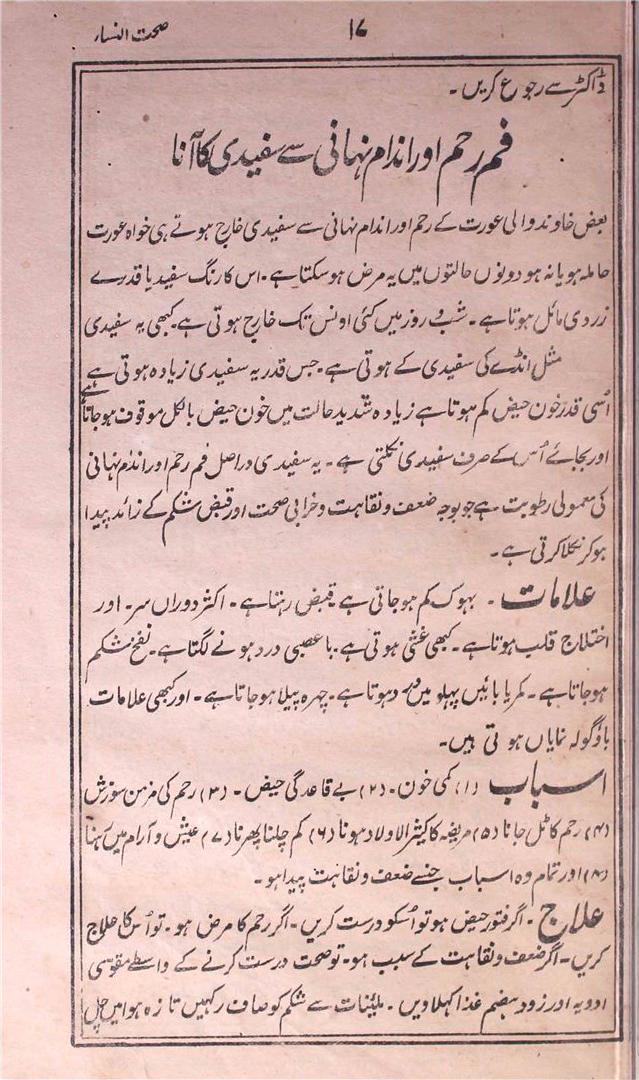 صحت النساء
۱۶
ڈاکٹر سے رجوع کریں۔
فم رحم اور اندام نہانی سے سفیدی کا آنا
بعض خاوند والی عورت کے رحم اور اندام نہانی سے سفیدی خارج ہوتے ہی خواہ عورت
حاملہ ہو یا نہ ہو دونوں حالتوں میں یہ مرض ہو سکتا ہے۔ اس کا رنگ سفید یا قدرے
زردی مائل ہوتا ہے۔ شب و روز میں کئی اونس تک خارج ہوتی ہے۔ کبھی یہ سفیدی
مثل انڈے کی سفیدی کے ہوتی ہے۔ جس قدر یہ سفیدی زیادہ ہوتی ہے
اُسی قدر خون حیض کم ہوتا ہے زیادہ شدید حالت میں خون حیض بالکل موقوف ہو جاتا ہے
اور بجائے اُس کے صرف سفیدی نکلتی ہے۔ یہ سفیدی دراصل فم رحم اور اندام نہانی
کی معمولی رطوبت ہے جو بوجہ ضعف و نقاہت و خرابی صحت اور قبض شکم کے زائد پیدا
ہو کر نکلا کرتی ہے۔
علامات ۔ بہوک کم ہو جاتی ہے قبض رہتا ہے۔ اکثر دوران سر۔ اور
اختلاج قلب ہوتا ہے۔ کبھی غشی ہوتی ہے۔ یا عصبی درد ہونے لگتا ہے۔ نفخ شکم
ہو جاتا ہے۔ کمر یا بائیں پہلو میں درد ہوتا ہے۔ چہرہ پیلا ہو جاتا ہے۔ اور کبھی علامات
باؤ گولہ نمایاں ہوتی ہیں۔
اسباب (۱) کمی خون۔ (۲) بے قاعدگی حیض۔ (۳) رحم کی مزمن سوزش
(۴) رحم کا ٹل جانا (۵) مریضہ کا کثیر الاولاد ہونا (۶) کم چلنا پھرنا (۷) عیش و آرام میں رہنا
(۸) اور تمام وہ اسباب جنسے ضعف و نقاہت پیدا ہو۔
علاج ۔ اگر فتور حیض ہو تو اُسکو درست کریں۔ اگر رحم کا مرض ہو۔ تو اُس کا علاج
کریں۔ اگر ضعف و نقاہت کے سبب ہو۔ تو صحت درست کرنے کے واسطے مقوی
ادویہ اور زود ہضم غذا کہلاویں۔ ملینات سے شکم کو صاف رکہیں تازہ ہوا میں چل